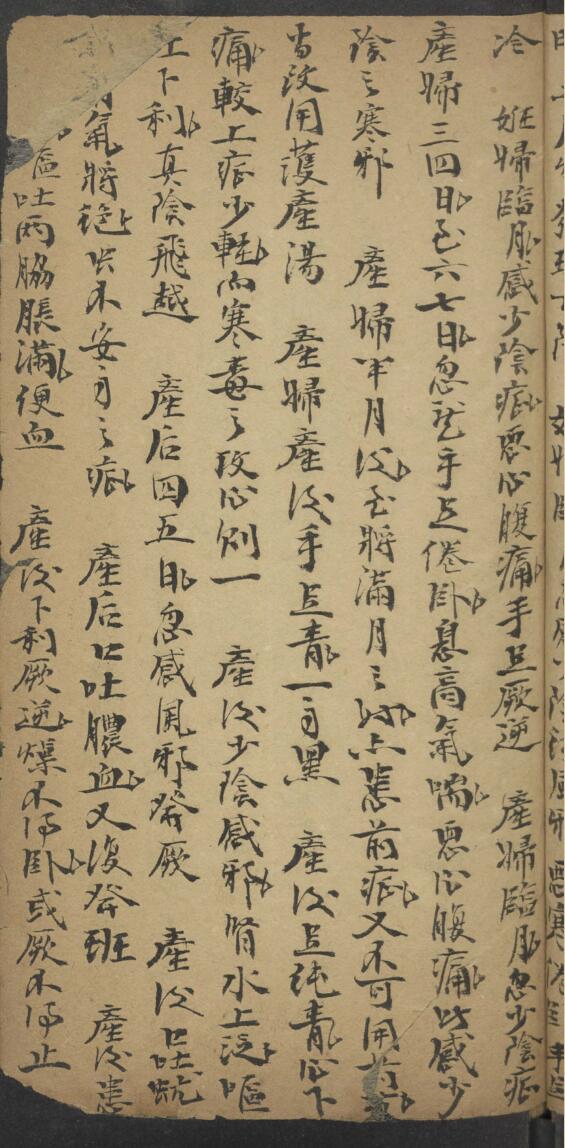 冷　妊婦臨月感少陰症惡心腹痛手足厥逆　產婦臨月忽少陰症
產婦三四日至六七日忽然手足倦卧息高氣喘惡心腹痛此感少
陰之寒邪　產婦半月後至將滿月之時亦患前症又不可用前
當改用護產湯　產婦產後手足青一身黑　產後足純青心下
痛較上症少輕而寒毒之攻心則一　產後少陰感邪腎水上泛嘔
下利真陰飛越　產后四五日忽感風邪發厥　產後口吐蚘
氣將絕火不安身之症　產后口吐膿血又復發班　產後患
嘔吐兩脇脹滿便血　產後下利厥逆燥不得卧或厥不得止